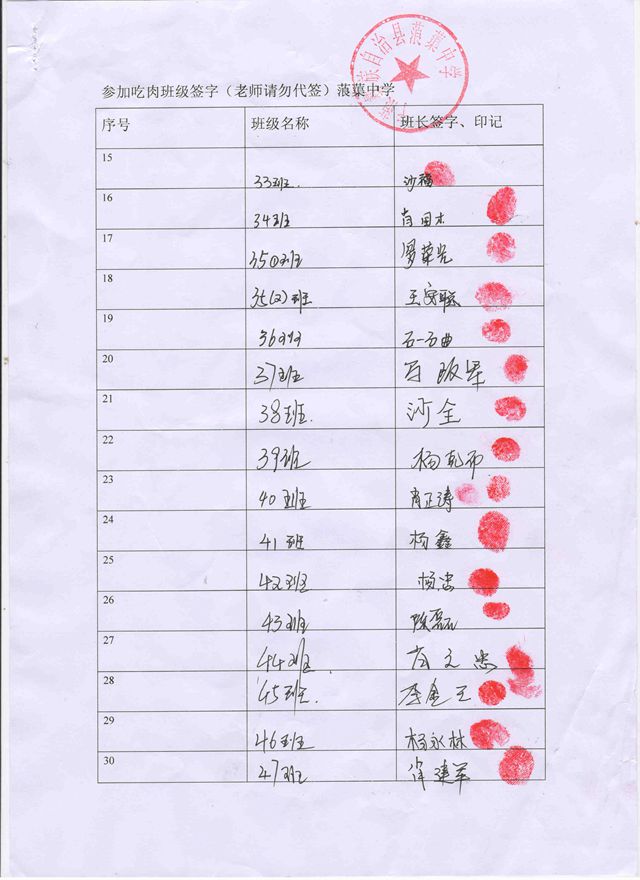 族自治县蒗蕖中学
参加吃肉班级签字（老师请勿代签）蒗蕖中学
序号 班级名称 班长签字、印记
15 33班. 沙福
16 34班 肖田木
17 35(1)班
18 35(2)班
19 36班 石一石曲
20 37班
21 38班. 沙全
22 39班
23 40班 肖正涛
24 41班 杨鑫
25 42班 杨忠
26 43班
27 44班. 肖文忠
28 45班. 李金玉
29 46班 杨永林
30 47班